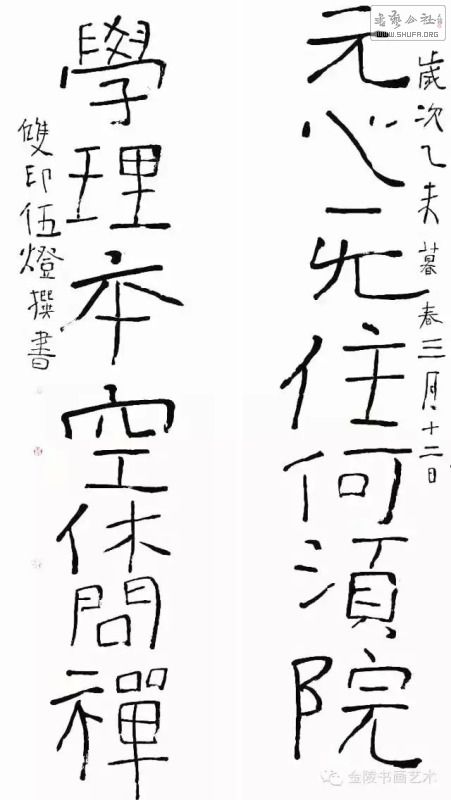 書藝公社
WWW.SHUFA.ORG
歲次乙未暮春三月十二日
元心无住何須院
學理本空休問禪
雙印伍燈撰書
金陵书画艺术